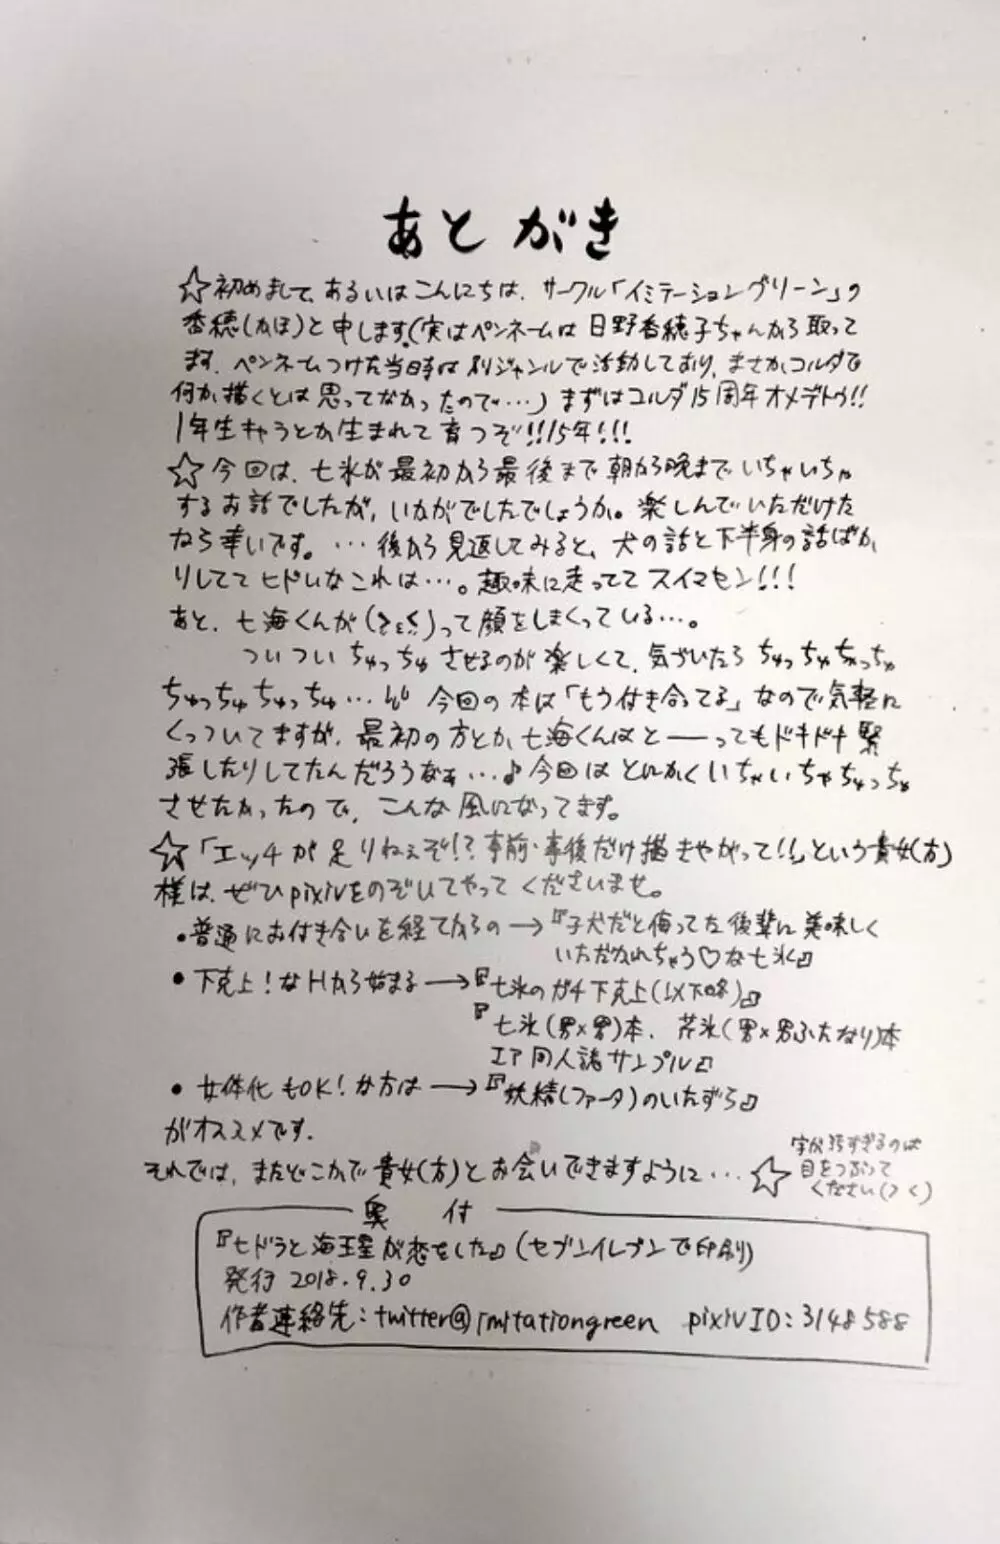 あとがき
☆初めまして、あるいはこんにちは、サークル「イミテーショングリーン」の
香穂(かほ)と申します。(実はペンネームは日野香穂子ちゃんから取って
ます。ペンネームつけた当時は別ジャンルで活動しており、まさかコルダで
何か描くとは思ってなかったので…)まずはコルダ15周年オメデトウ!!
1年生キャラとか生まれて育つぞ!!15年!!!
☆今回は、七氷が最初から最後まで朝から晩までいちゃいちゃ
するお話でしたが、いかがでしたでしょうか。楽しんでいただけた
なら幸いです。…後から見返してみると、犬の話と下半身の話ばか
りしててヒドいなこれは…。趣味に走っててスイマセン!!!
あと、七海くんが って顔をしまくっている…。
ついついちゅっちゅさせるのが楽しくて、気づいたらちゅっちゅちゅっちゅ
ちゅっちゅちゅっちゅ… 今回の本は「もう付き合ってる」なので気軽に
くっついてますが、最初の方とか七海くんはと――ってもドキドキ緊
張したりしてたんだろうなぁ…♪今回はとにかくいちゃいちゃちゅっちゅ
させたかったので、こんな風になってます。
☆「エッチが足りねぇぞ!?事前・事後だけ描きやがって!!」という貴女(方)
様は、ぜひpixivをのぞいてやってくださいませ。
•普通にお付き合いを経てからの→『子犬だと侮ってた後輩に美味しく
いただかれちゃう♡な七氷』
•下克上!なHから始まる→『七氷のガチ下克上(以下略)』
『七氷(男×男)本、芹氷(男×男ふたなり)本
エア同人誌サンプル』
•女体化もOK!な方は→『妖精(ファータ)のいたずら』
がオススメです。
それでは、またどこかで貴女(方)とお会いできますように…☆
字が汚すぎるのは
目をつぶって
ください(＞＜)
奥付
『七ドラと海王星が恋をした』(セブンイレブンで印刷)
発行 2018.9.30
作者連絡先:twitter@imitationgreen pixivID:3148588